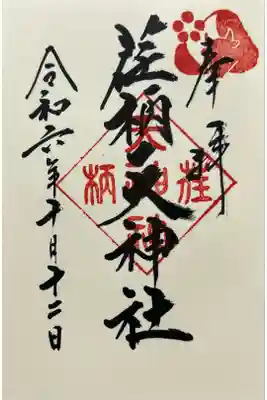 奉拝
荏柄天神社
荏柄
令和六年十月十二日